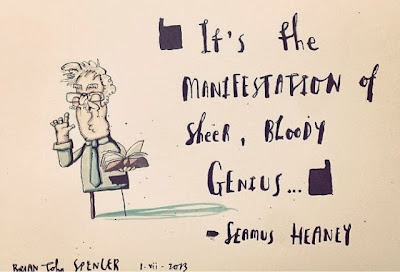 It's the
MANIFESTATION of
Sheer, BLOODY
GENIUS...
- SEAMUS HEANEY
BRIAN John SPENCER 1-vii-2013